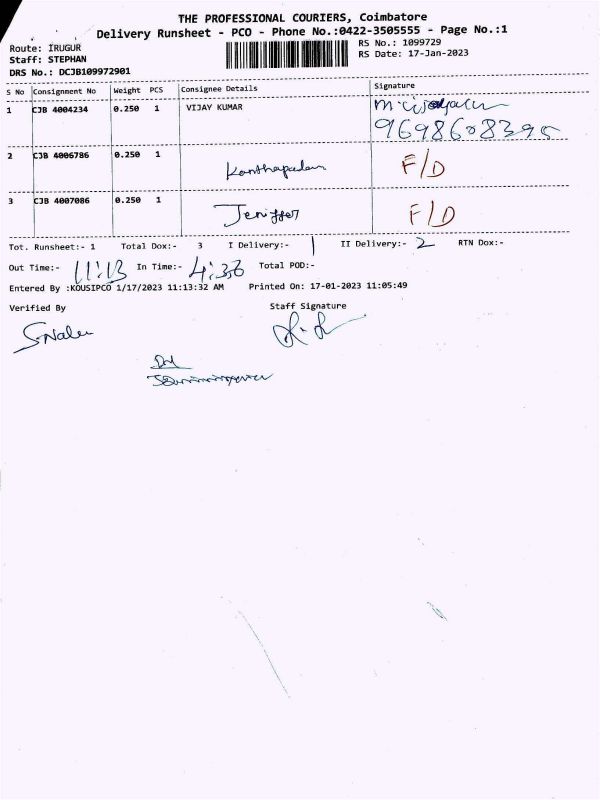 THE PROFESSIONAL COURIERS, Coimbatore
Delivery Runsheet - PCO - Phone No.:0422-3505555 - Page No.:1
Route: IRUGUR
Staff: STEPHAN
DRS No.: DCJB109972901
RS No.: 1099729
RS Date: 17-Jan-2023
S No Consignment No Weight PCS Consignee Details Signature
1 CJB 4004234 0.250 1 VIJAY KUMAR
9698608390
2 CJB 4006786 0.250 1 F/D
3 CJB 4007086 0.250 1 Jeniffer F/D
Tot. Runsheet:- 1 Total Dox:- 3 I Delivery:- 1 II Delivery:- 2 RTN Dox:-
Out Time:- 11:13 In Time:- 4:36 Total POD:-
Entered By :KOUSIPCO 1/17/2023 11:13:32 AM Printed On: 17-01-2023 11:05:49
Verified By Staff Signature